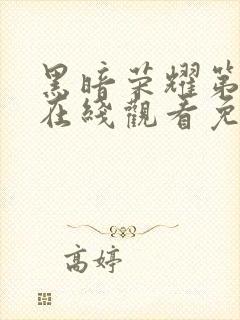 黑暗荣耀第
在线觀看免
高婷